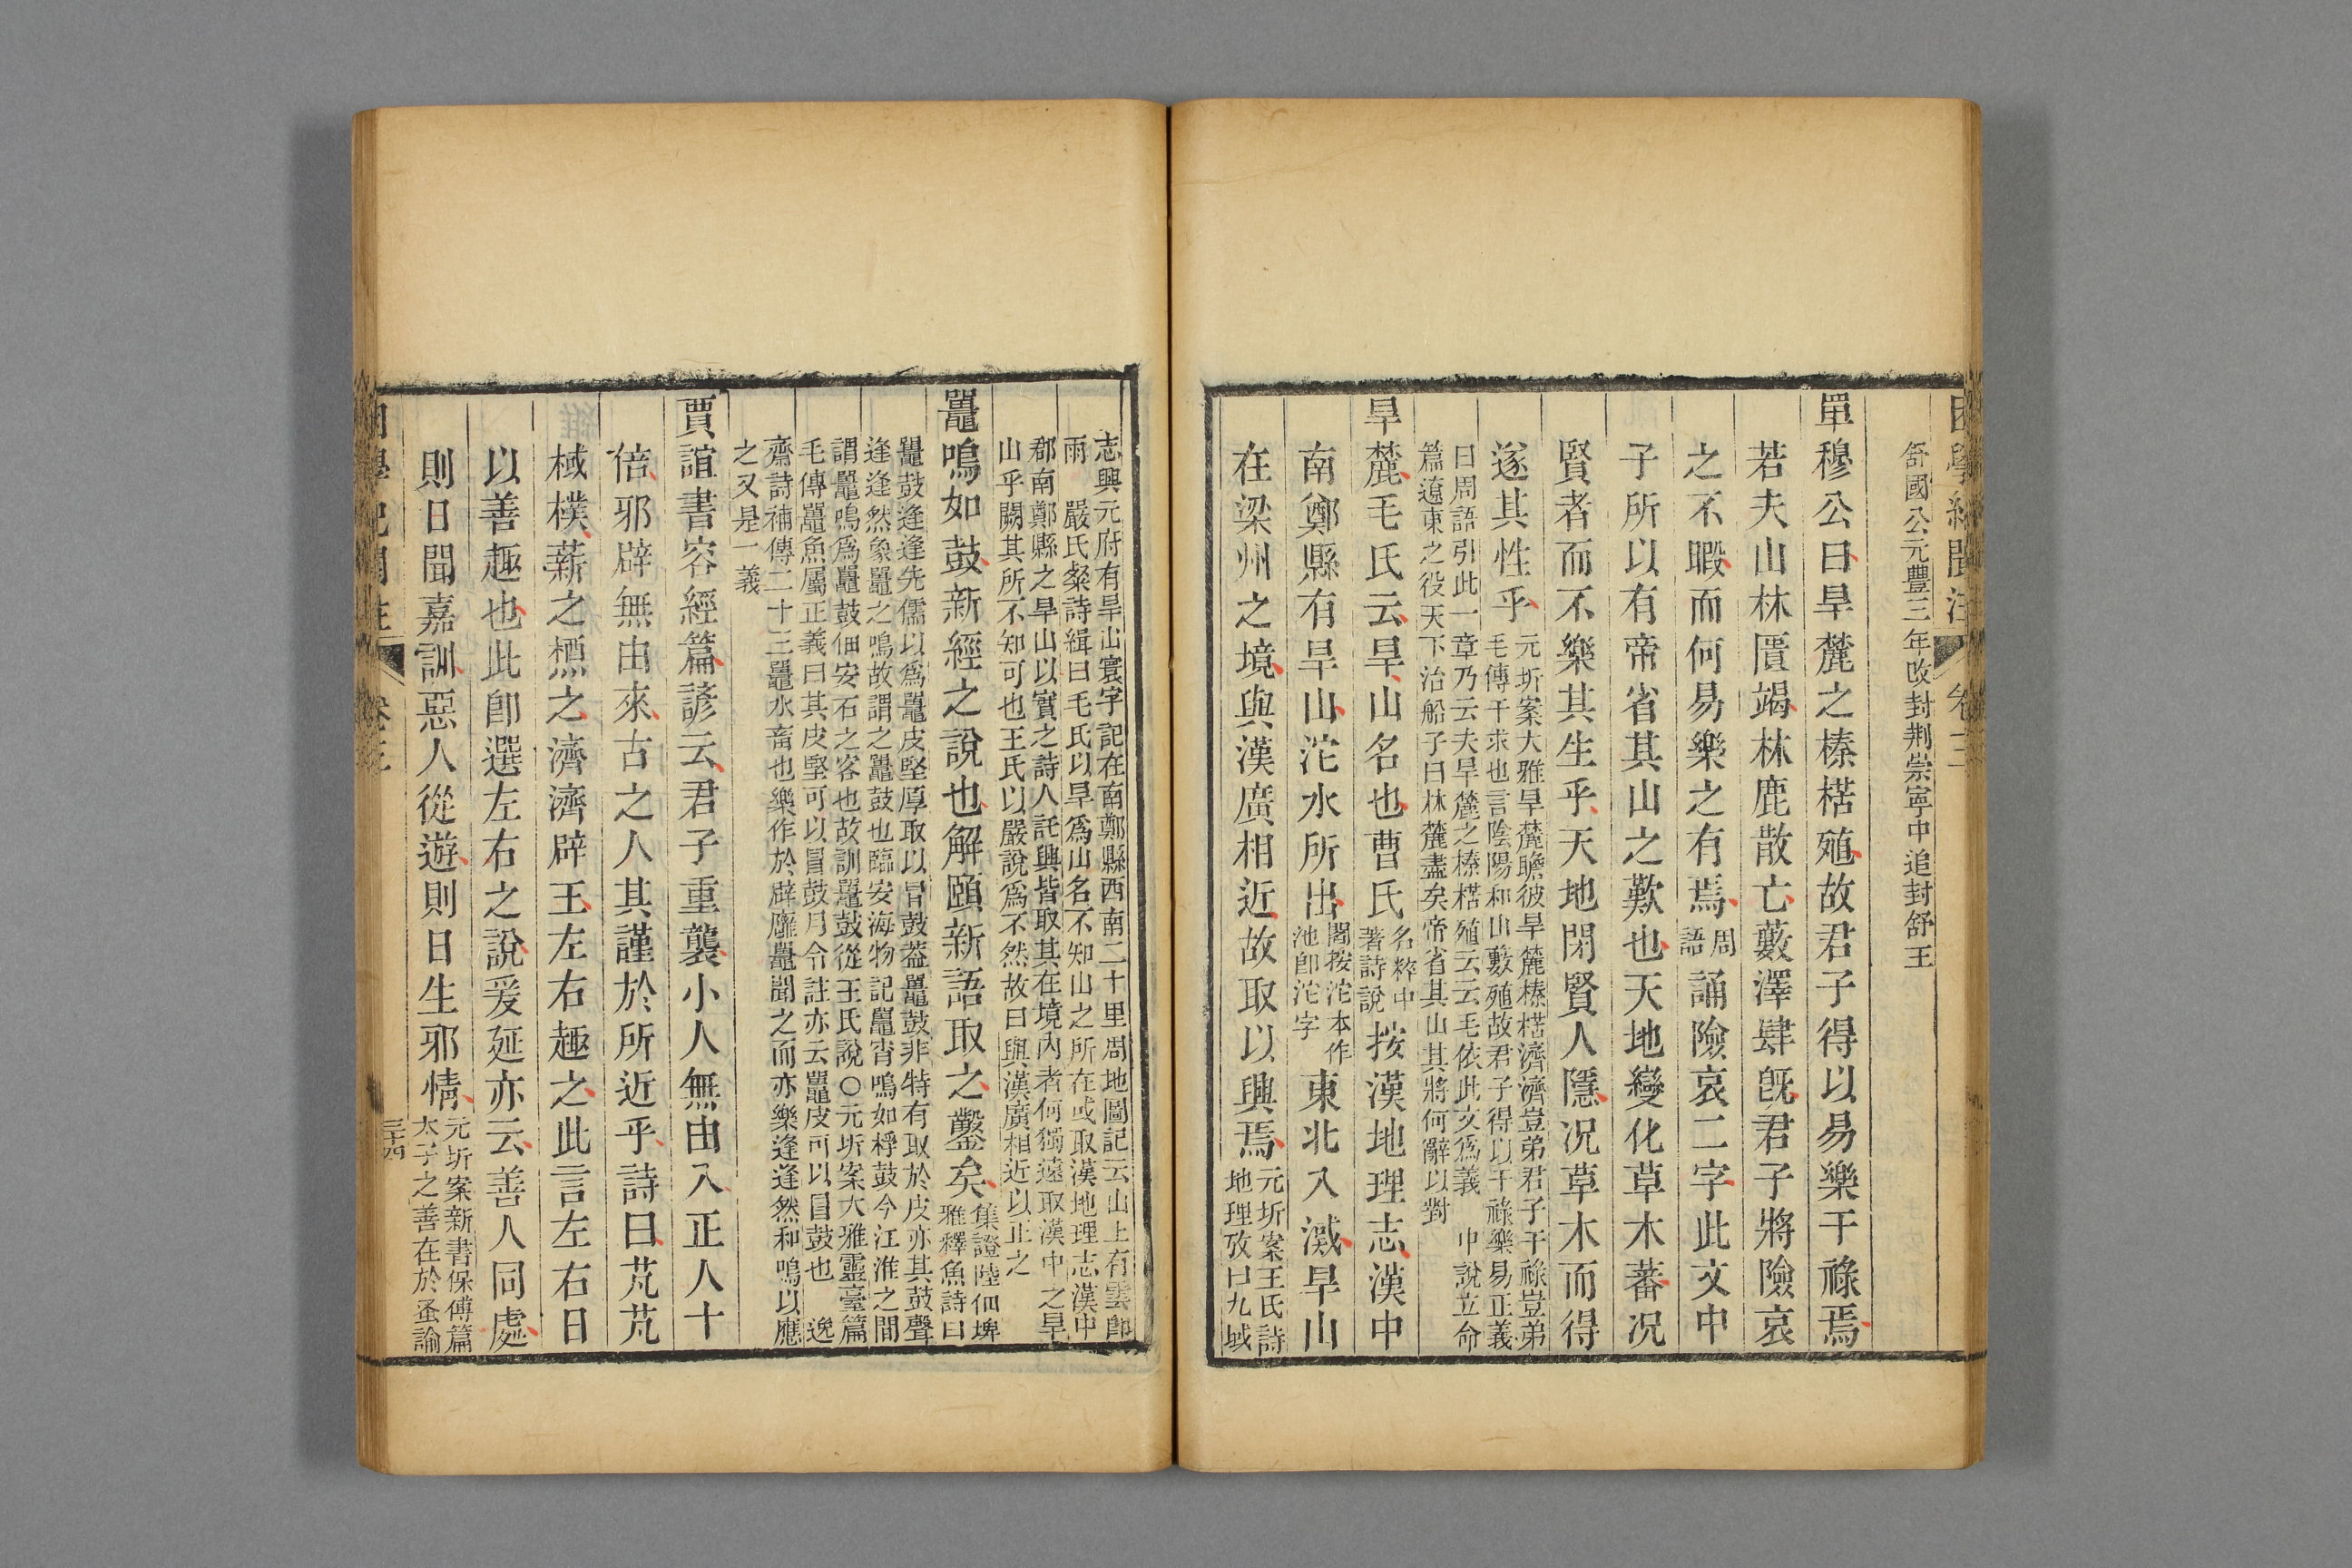 困學紀聞注 卷三
舒國公元豐三年改封荆崇寧中追封舒王
單穆公曰旱麓之榛楛殖故君子得以易樂干祿焉
若夫山林匱竭林鹿散亡藪澤肆旣君子將險哀
之不暇而何易樂之有焉周語誦險哀二字此文中
子所以有帝省其山之歎也天地變化草木蕃況
賢者而不樂其生乎天地閉賢人隱況草木而得
遂其性乎元圻案大雅旱麓瞻彼旱麓榛楛濟濟豈弟君子干祿豈弟
毛傳干求也言陰陽和山藪殖故君子得以干祿樂易正義
曰周語引此一章乃云夫旱麓之榛楛殖云云毛依此文爲義 中說立命
篇遼東之役天下治船子曰林麓盡矣帝省其山其將何辭以對
旱麓毛氏云旱山名也曹氏名粹中著詩說按漢地理志漢中
南鄭縣有旱山沱水所出閻按沱本作池卽沱字東北入漢旱山
在梁州之境與漢廣相近故取以興焉元圻案王氏詩
地理攷曰九域
志興元府有旱山寰宇記在南鄭縣西南二十里周地圖記云山上有雲卽
雨 嚴氏粲詩緝曰毛氏以旱爲山名不知山之所在或取漢地理志漢中
郡南鄭縣之旱山以實之詩人託興皆取其在境內者何獨遠取漢中之旱
山乎闕其所不知可也王氏以嚴說爲不然故曰與漢廣相近以正之
鼉鳴如鼓新經之說也解頤新語取之鑿矣集證陸佃埤
雅釋魚詩曰
鼉鼓逢逢先儒以爲鼉皮堅厚取以冒鼓葢鼉鼓非特有取於皮亦其鼓聲
逢逢然象鼉之鳴故謂之鼉鼓也臨安海物記鼉宵鳴如桴鼓今江淮之間
謂鼉鳴爲鼉鼓佃安石之客也故訓鼉鼓從王氏說○元圻案大雅靈臺篇
毛傳鼉魚屬正義曰其皮堅可以冒鼓月令註亦云鼉皮可以冒鼓也 逸
齋詩補傳二十三鼉水畜也樂作於辟廱鼉聞之而亦樂逢逢然和鳴以應
之又是一義
賈誼書容經篇諺云君子重襲小人無由入正人十
倍邪辟無由來古之人其謹於所近乎詩曰芃芃
棫樸薪之槱之濟濟辟王左右趣之此言左右日
以善趣也此卽選左右之說爰延亦云善人同處
則日聞嘉訓惡人從遊則日生邪情元圻案新書保傅篇
太子之善在於蚤諭
困學紀聞注 卷三 三十四